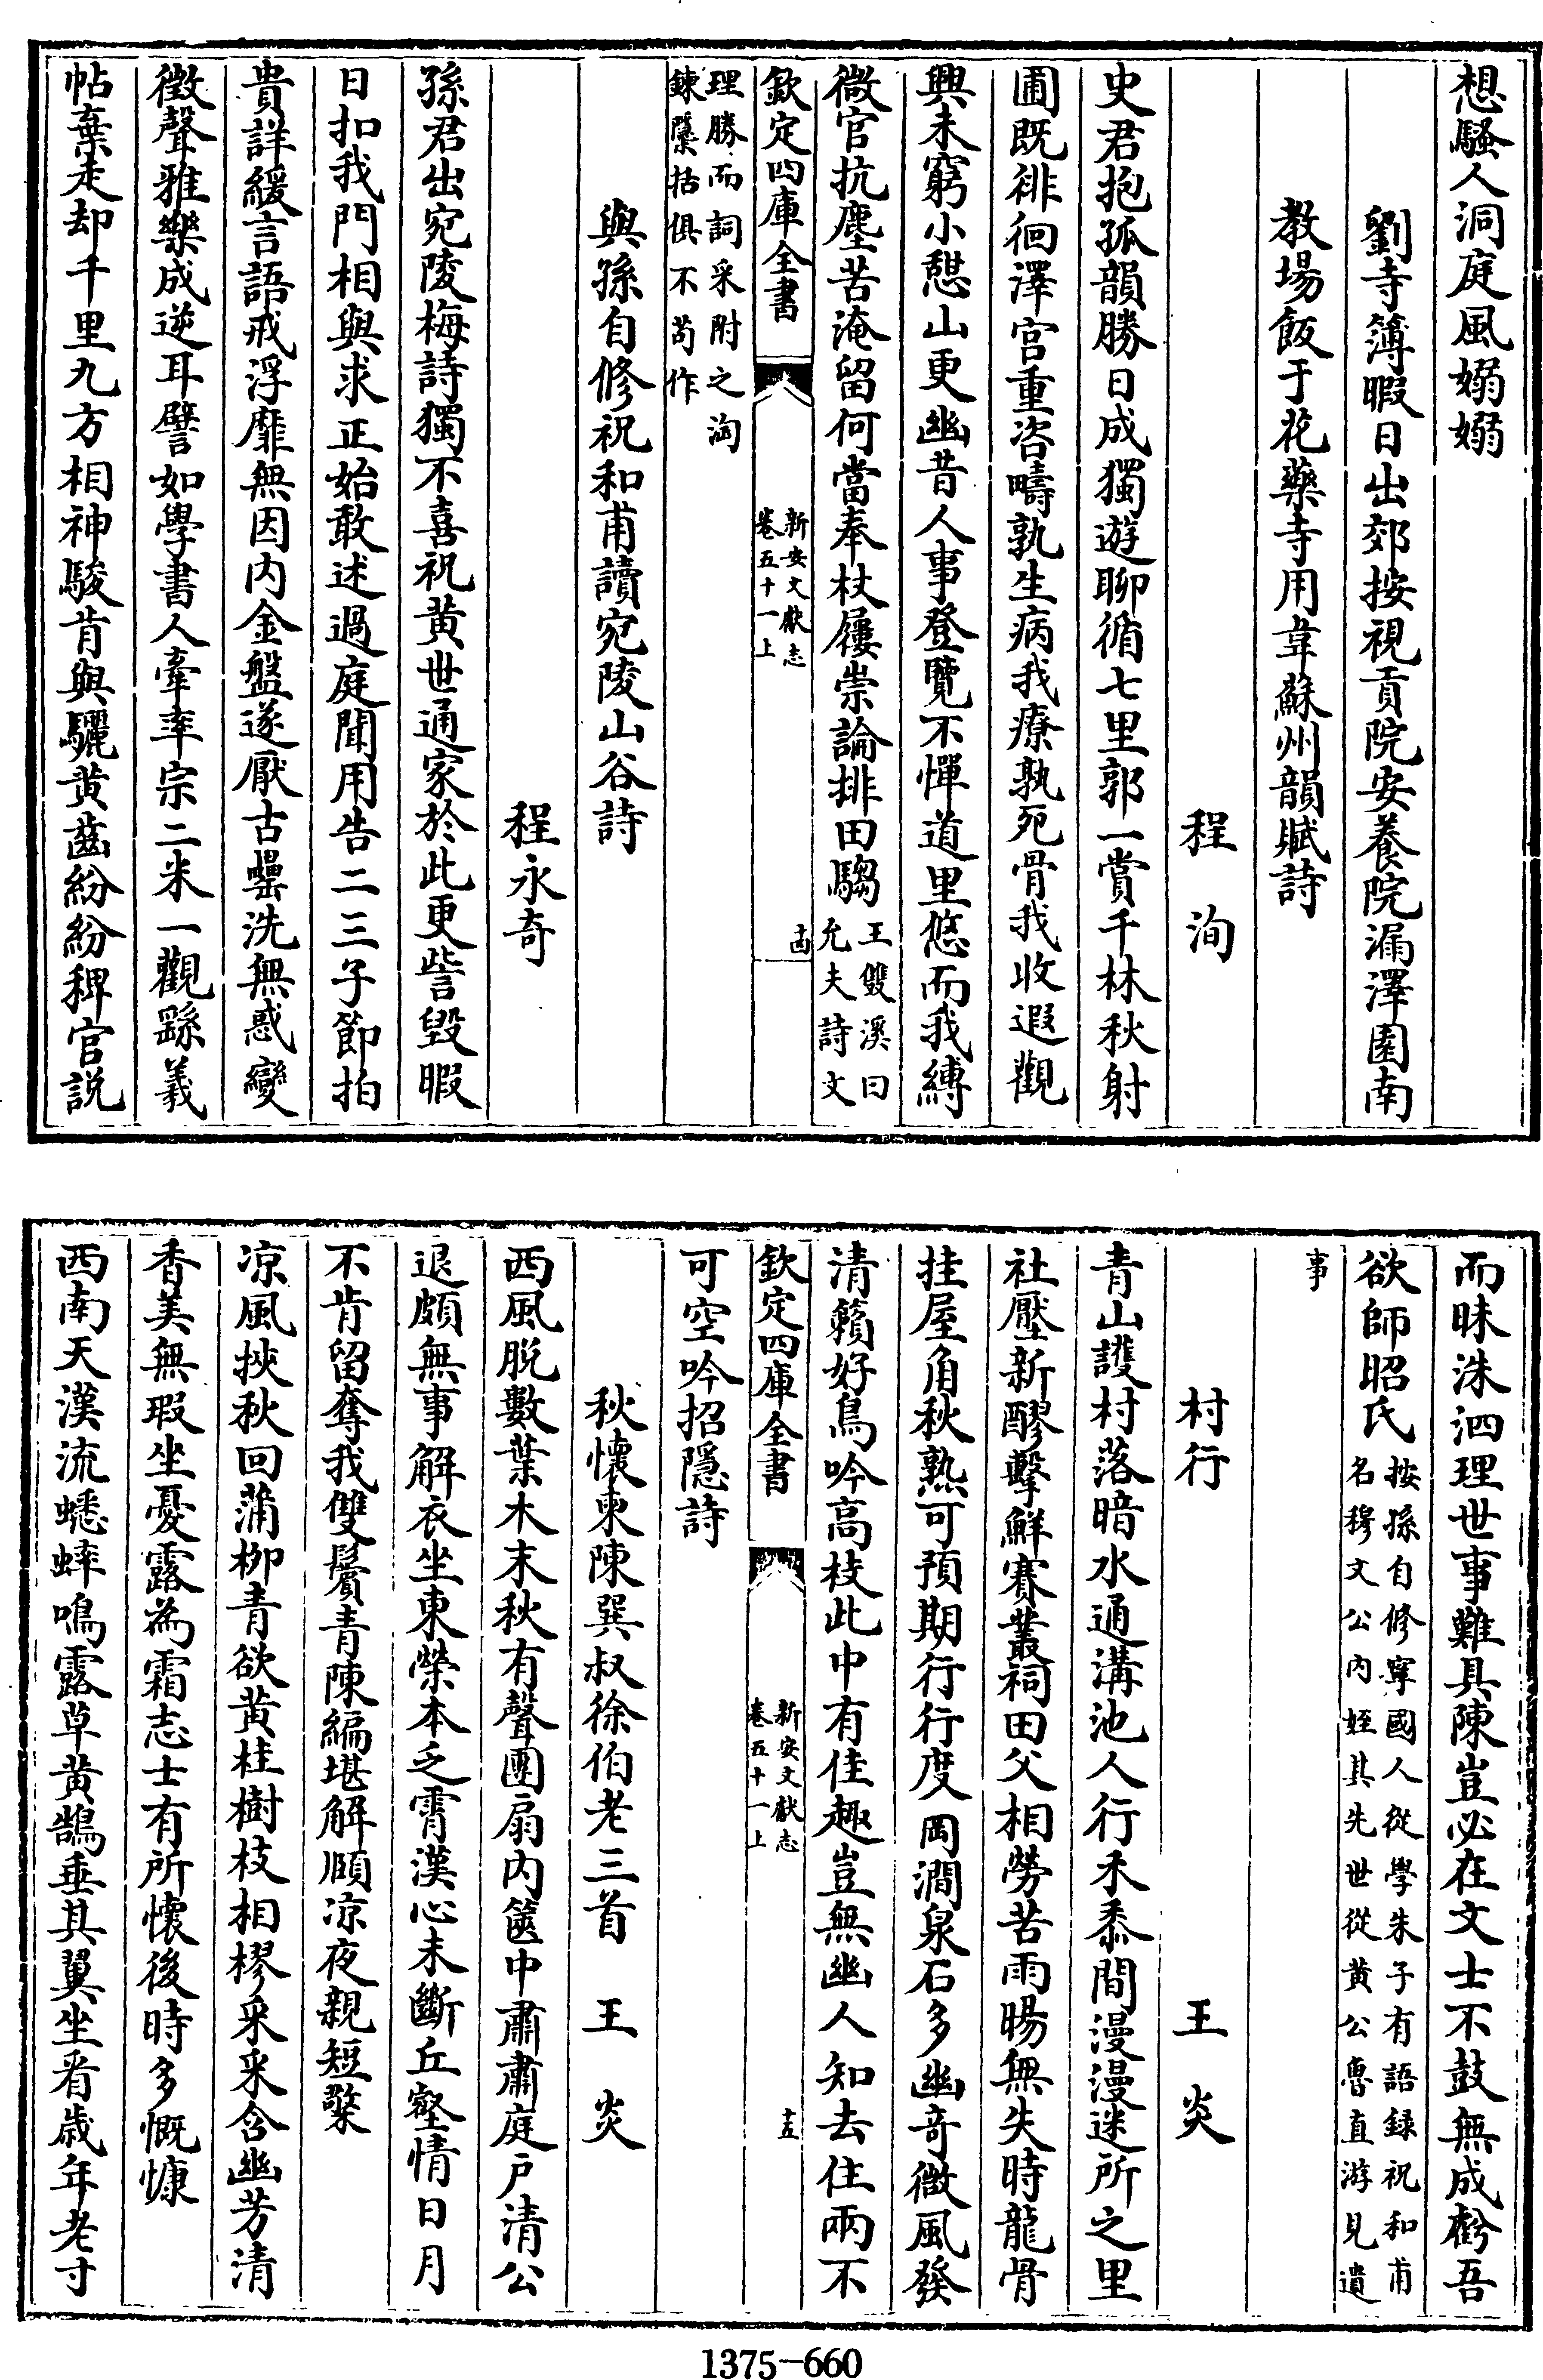 想騷人洞庭風嫋嫋
劉寺簿暇日出郊按視貢院安養院漏澤園南
教場飯于花藥寺用韋蘇州韻賦詩
程洵
史君抱孤韻勝日成獨遊聊循七里郭一賞千林秋射
圃既徘徊澤宫重咨疇孰生病我療孰死骨我收遐觀
興未窮小憇山更幽昔人事登覽不憚道里悠而我縛
微官抗塵苦淹留何當奉杖屨崇論排田騶王雙溪曰
允夫詩文
欽定四庫全書
新安文獻志
卷五十一上
十四
理勝而詞采附之淘
鍊櫽括俱不茍作
與孫自修祝和甫讀宛陵山谷詩
程永竒
孫君出宛陵梅詩獨不喜祝黄世通家於此更訾毁暇
日扣我門相與求正始敢述過庭聞用告二三子節拍
貴詳緩言語戒浮靡無因内金盤遂厭古罍洗無惑變
徴聲雅樂成逆耳譬如學書人牽率宗二米一觀繇羲
帖棄走却千里九方相神駿肯與驪黄齒紛紛稗官説
而昧洙泗理世事難具陳豈必在文士不鼓無成虧吾
欲師昭氏按孫自修寧國人從學朱子有語録祝和甫
名穆文公内姪其先世從黄公魯直游見遺
事
村行
王炎
青山護村落暗水通溝池人行禾黍間漫漫迷所之里
社壓新醪擊鮮賽叢祠田父相勞苦雨暘無失時龍骨
挂屋角秋熟可預期行行度岡澗泉石多幽竒微風發
清籟好鳥吟高枝此中有佳趣豈無幽人知去住兩不
欽定四庫全書
新安文獻志
卷五十一上
十五
可空吟招隱詩
秋懷柬陳巽叔徐伯老三首
王炎
西風脱數葉木末秋有聲團扇内篋中肅肅庭戸清公
退頗無事解衣坐東榮本乏霄漢心未斷丘壑情日月
不肯留奪我雙鬢青陳編堪解頤凉夜親短檠
凉風挾秋回蒲柳青欲黄桂樹枝相樛采采含幽芳清
香美無瑕坐憂露為霜志士有所懷後時多慨慷
西南天漢流蟋蟀鳴露草黄鵠垂其翼坐看歳年老寸
1375-660